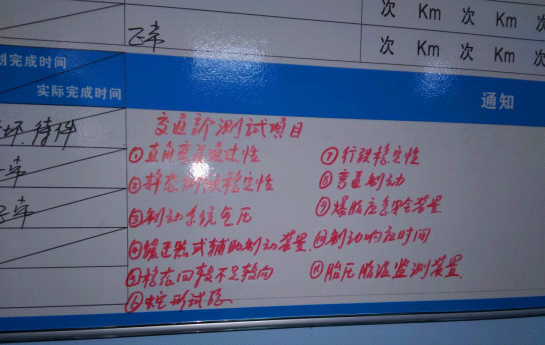 次 Km 次 Km 次
正常 次 Km 次 Km 次
划完成时间
实际完成时间
通知
坏.待件
常
正常
交通部测试项目
①直角弯道通过性
②静态侧倾稳定性
③制动系统气压
④缓速器或辅助制动装置
⑤稳态回转不足转向
⑥蛇形试验
⑦行驶稳定性
⑧弯道制动
⑨爆胎应急安全装置
⑩制动响应时间
⑪胎压胎温监测装置